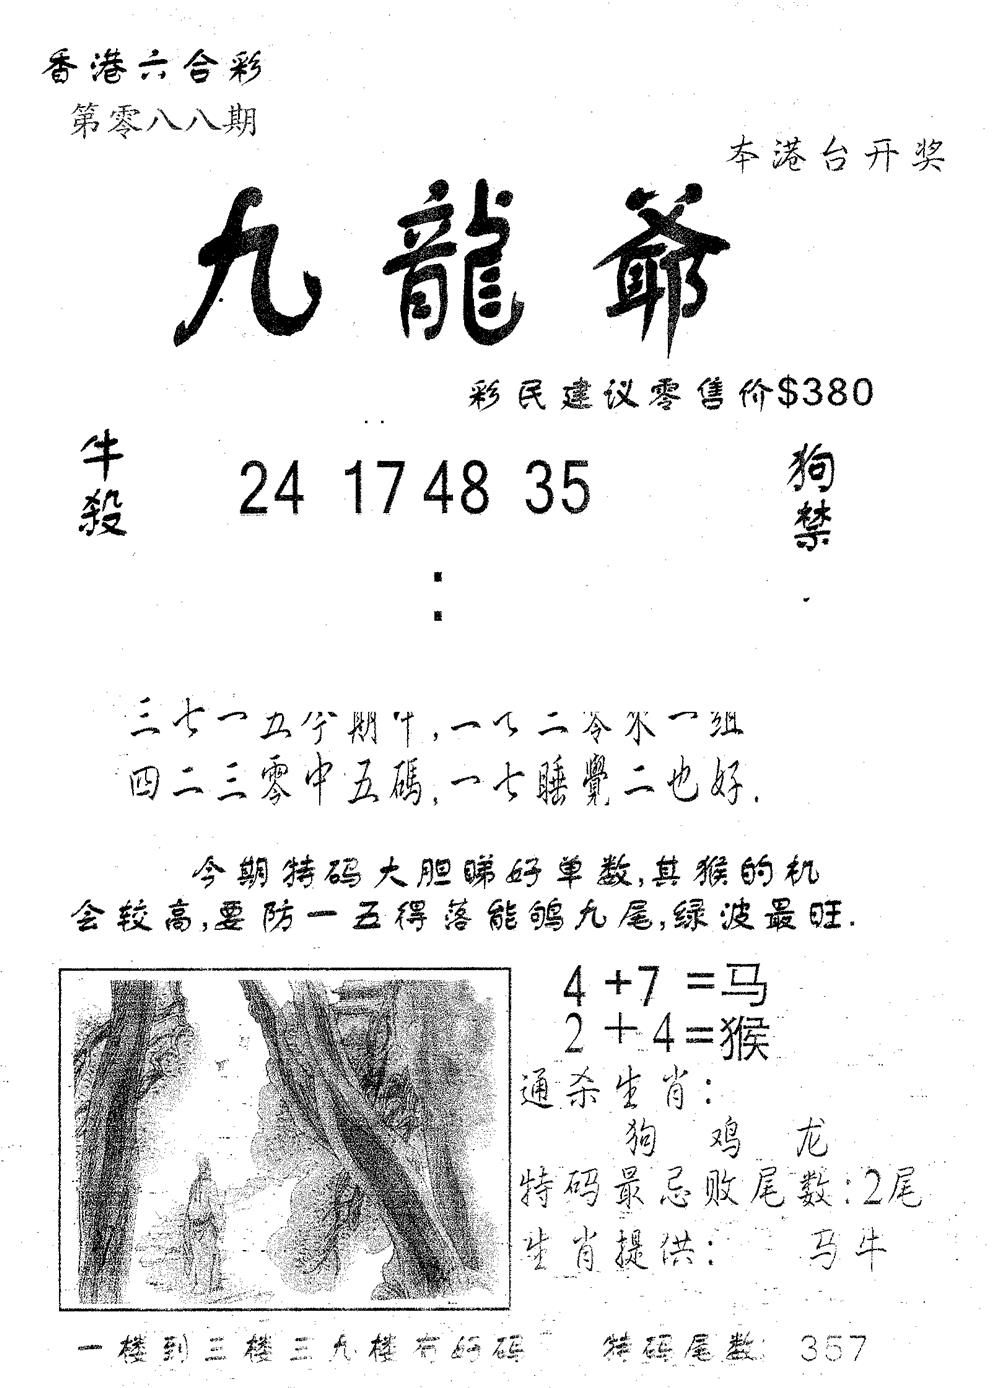 香港六合彩
第零八八期
本港台开奖
九龍爺
彩民建议零售价$380
牛殺
24 17 48 35
狗禁
:
三七一五今期中,一七二零來一組
四二三零中五碼,一七睡覺二也好.
今期特码大胆睇好单数,其猴的机
会较高,要防一五得落能鸲九尾,绿波最旺.
4+7=马
2+4=猴
通杀生肖:
狗 鸡 龙
特码最忌败尾数:2尾
生肖提供: 马牛
一楼到三楼三九楼有好码 特码尾数: 357